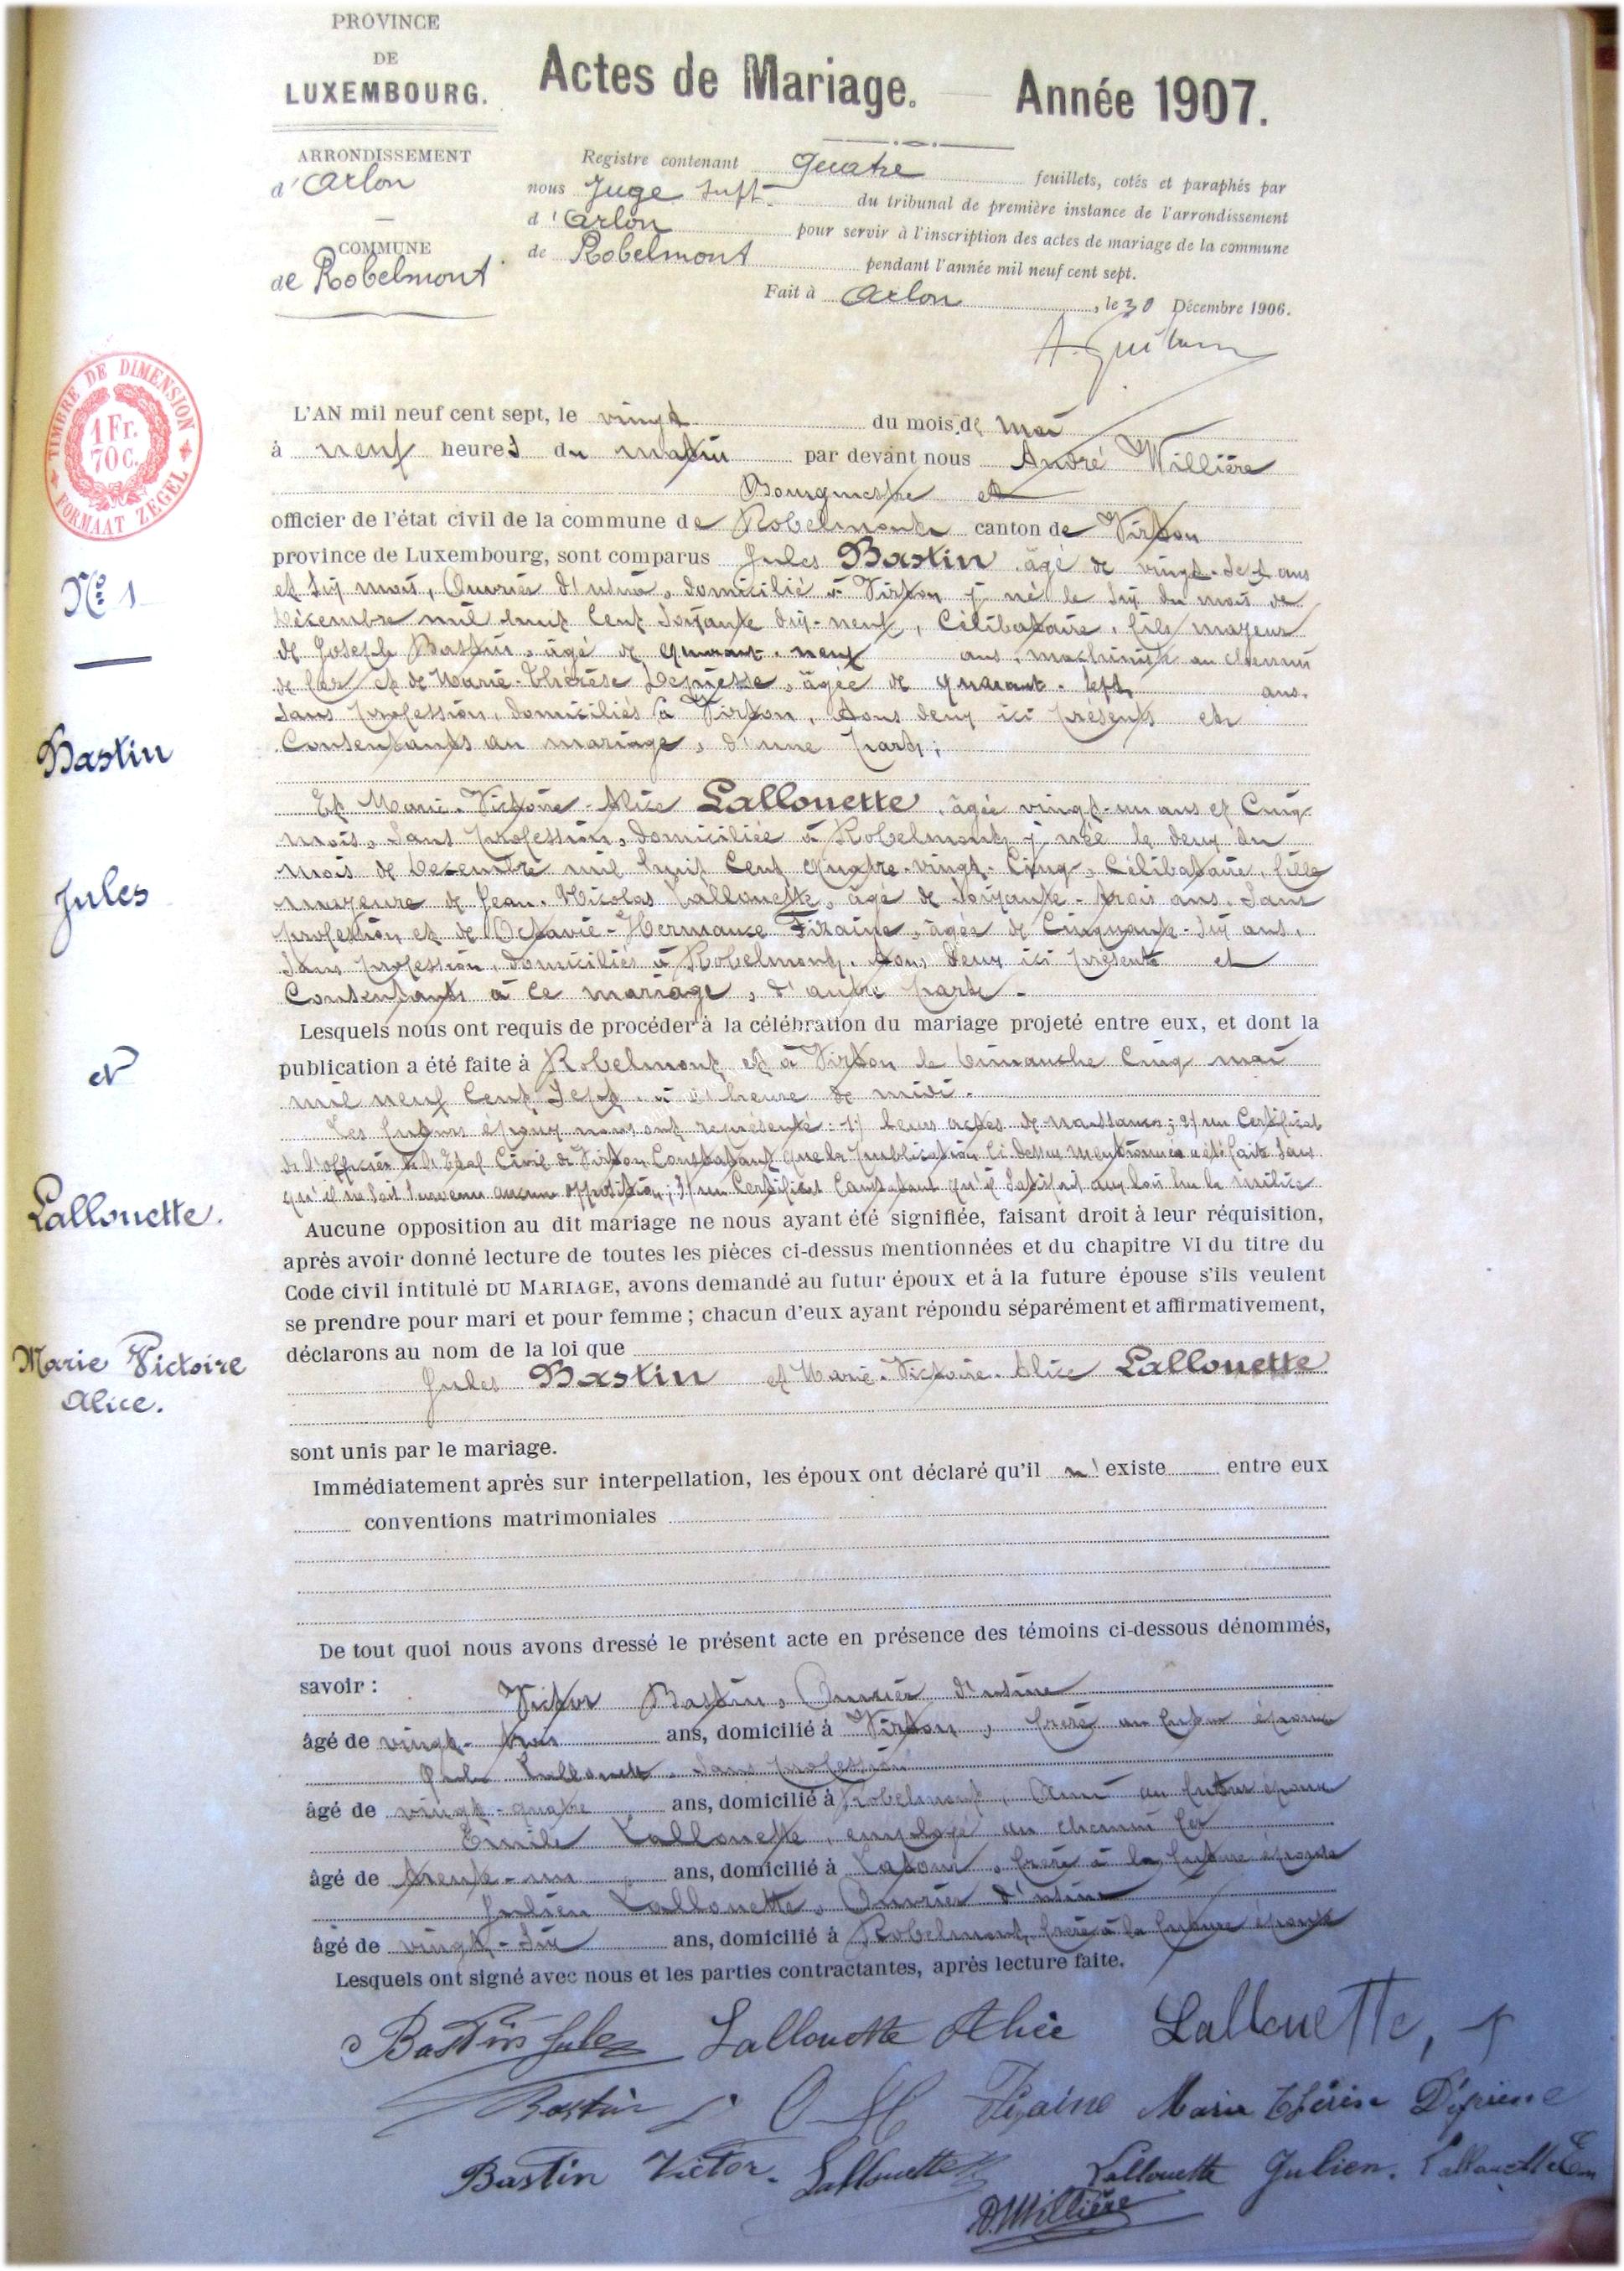 PROVINCE
DE
LUXEMBOURG.
Actes de Mariage. — Année 1907.
ARRONDISSEMENT
d'Arlon
COMMUNE
de Robelmont
Registre contenant quatre feuillets, cotés et paraphés par
nous Juge supt. du tribunal de première instance de l'arrondissement
d'Arlon pour servir à l'inscription des actes de mariage de la commune
de Robelmont pendant l'année mil neuf cent sept.
Fait à Arlon, le 30 Décembre 1906.
TIMBRE DE DIMENSION
1 Fr.
70 C.
FORMAAT ZEGEL
N° 1
Bastin
Jules
et
Lallouette.
Marie Victoire
Alice.
L'AN mil neuf cent sept, le vingt du mois de Mai
à neuf heures du matin par devant nous André Willière
Bourgmestre et
officier de l'état civil de la commune de Robelmont canton de Virton
province de Luxembourg, sont comparus Jules Bastin âgé de vingt-sept ans
et six mois, Ouvrier d'usine, domicilié à Virton y né le six du mois de
Décembre mil huit cent soixante dix-neuf, Célibataire, fils majeur
de Joseph Bastin, âgé de quarant-neuf ans, machiniste au chemin
de fer et de Marie-Thérèse Depiesse, âgée de quarant-sept ans,
sans profession, domiciliés à Virton, tous deux ici présents et
Consentants au mariage, d'une part;
Et Marie-Victoire-Alice Lallouette, âgée vingt-un ans et Cinq
mois, sans profession, domiciliée à Robelmont y née le deux du
mois de Décembre mil huit Cent quatre-vingt-Cinq, Célibataire, fille
majeure de Jean-Nicolas Lallouette, âgé de soixante-trois ans, sans
profession et de Octavie-Hermance Fizaine, âgée de Cinquante-six ans,
sans profession, domiciliés à Robelmont, tous deux ici présents et
Consentants à ce mariage, d'autre part.
Lesquels nous ont requis de procéder à la célébration du mariage projeté entre eux, et dont la
publication a été faite à Robelmont et à Virton le Dimanche Cinq mai
mil neuf Cent Sept, à l'heure de midi.
Les futurs époux nous ont représenté: 1) leurs actes de naissance; 2) un Certificat
de l'officier de l'Etat Civil de Virton Constatant que la publication Ci-dessus mentionnée a été faite sans
qu'il ne soit survenu aucune opposition; 3) un Certificat Constatant qu'il satisfait aux lois sur la milice
Aucune opposition au dit mariage ne nous ayant été signifiée, faisant droit à leur réquisition,
après avoir donné lecture de toutes les pièces ci-dessus mentionnées et du chapitre VI du titre du
Code civil intitulé DU MARIAGE, avons demandé au futur époux et à la future épouse s'ils veulent
se prendre pour mari et pour femme ; chacun d'eux ayant répondu séparément et affirmativement,
déclarons au nom de la loi que
Jules Bastin et Marie-Victoire-Alice Lallouette
sont unis par le mariage.
Immédiatement après sur interpellation, les époux ont déclaré qu'il n'existe entre eux
conventions matrimoniales
De tout quoi nous avons dressé le présent acte en présence des témoins ci-dessous dénommés,
savoir :
Victor Bastin, Ouvrier d'usine
âgé de vingt-trois ans, domicilié à Virton, frère au futur époux
Lallouette, sans profession
âgé de vingt-quatre ans, domicilié à Robelmont, Ami au futur époux
Emile Lallouette, employé au chemin fer
âgé de trente-un ans, domicilié à Latour, frère à la future épouse
Julien Lallouette, Ouvrier d'usine
âgé de vingt-six ans, domicilié à Robelmont, frère à la future épouse
Lesquels ont signé avec nous et les parties contractantes, après lecture faite.
Bastin Jules Lallouette Alice Lallouette,
Bastin J. O H Fizaine Marie Thérèse
Bastin Victor. Lallouette Lallouette Julien. Lallouette Em
A. Willière